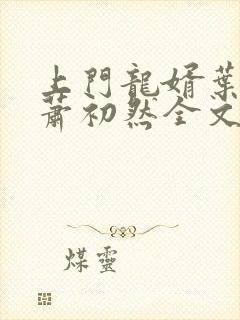 上門龍婿葉
蕭初然全文
煤靈